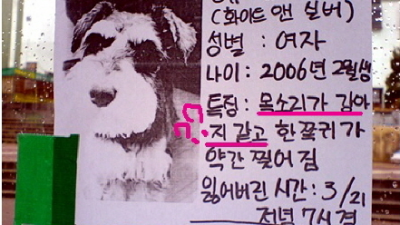 (화이트 앤 실버)
성별 : 여자
나이 : 2006년 2월생
특징 : 목소리가 강아
지 같고 한쪽귀가
약간 찢어짐
잃어버린 시간 : 3/21
저녁 7시경